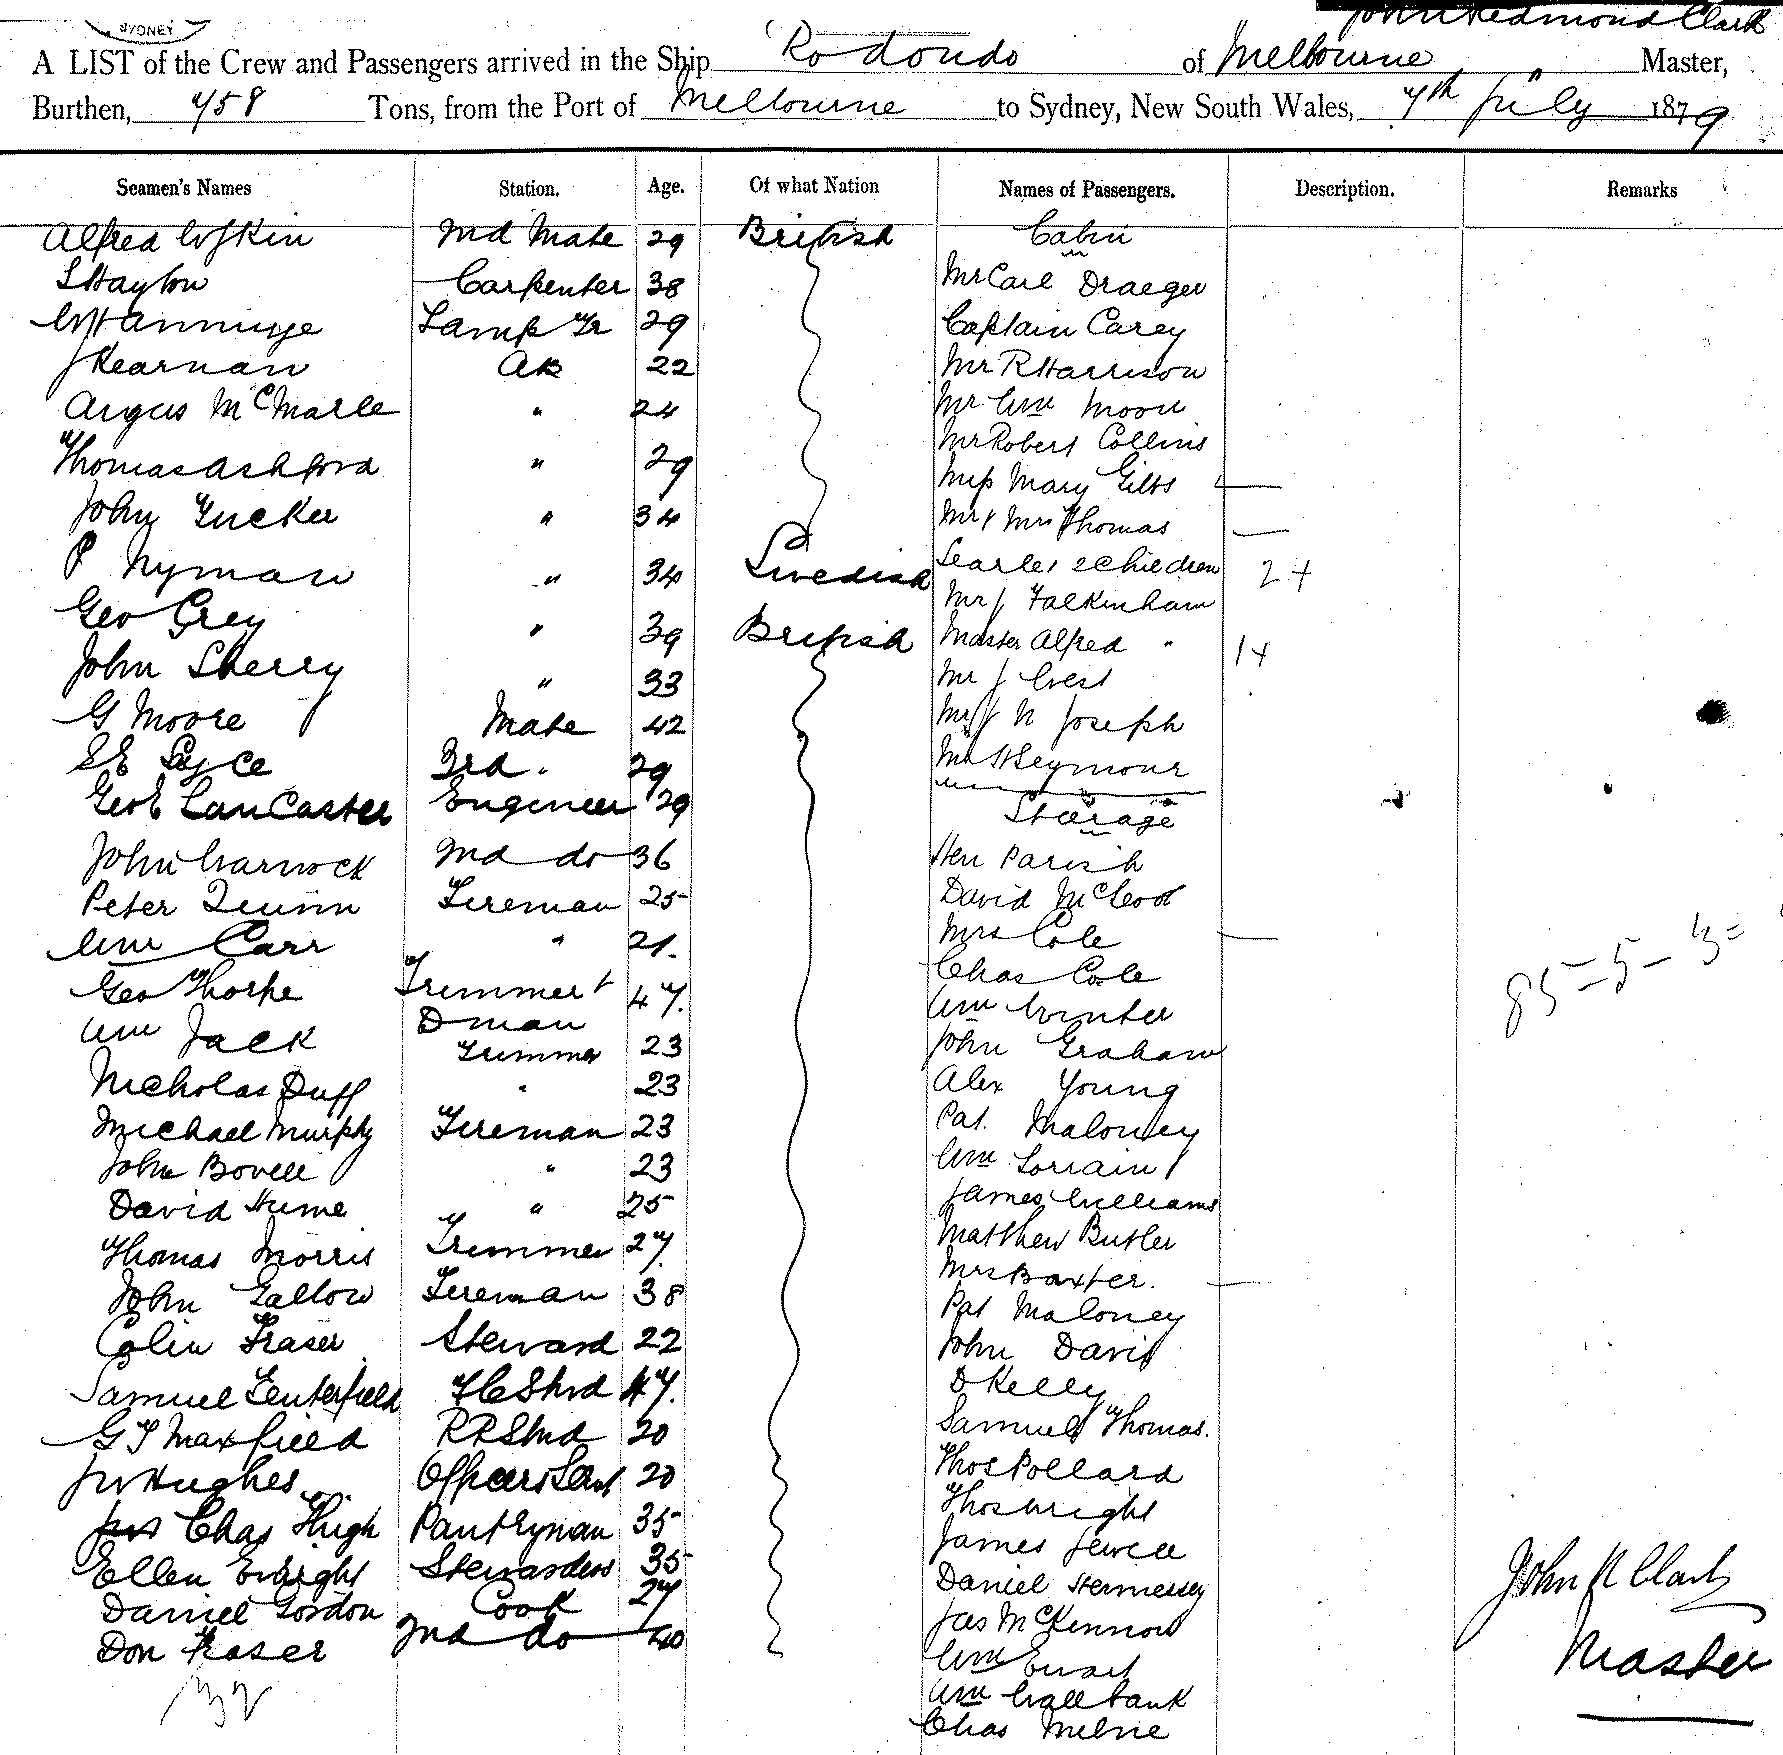 SYDNEY
John Redmond Clark
A LIST of the Crew and Passengers arrived in the Ship Rodondo of Melbourne Master,
Burthen, 758 Tons, from the Port of Melbourne to Sydney, New South Wales, 7th July 1879
Seamen's Names Station. Age. Of what Nation Names of Passengers. Description. Remarks
Alfred 2nd Mate 29 British Cabin
S Hayton Carpenter 38 Mr Carl Draeger
W Hanninge Lamp Tr 29 Captain Carey
J Kearnan AB 22 Mr R Harrison
Angus McMarle " 24 Mr Wm Moore
Mr Robert Collins
Thomas Ashford " 29 Miss Mary Gibbs —
John Tucker " 34 Mr & Mrs Thomas —
P Nyman " 34 Swedish Searle & 2 Children 2 +
Mr J Falkinham
Geo Grey " 39 British Master Alfred " 1 +
John Sherry " 33 Mr J West
G Moore Mate 42 Mr N Joseph
S E Syce 3rd " 29 Mr H Seymour
Geo E Lancaster Engineer 29 Steerage
John Warnock 2nd do 36 Hen Parish
Peter Quinn Fireman 25 David McLeod
Wm Carr " 21. Mrs Cole —
Chas Cole
Geo Thorpe Trimmer & 47. Wm Winter
Dman
Wm Jack Trimmer 23 John Graham
Nicholas Duff " 23 Alex Young
Michael Murphy Fireman 23 Pat. Maloney
John Bovell " 23 Wm Lorrain
David Hume " 25 James Williams
Thomas Morris Trimmer 27. Matthew Butler
Mrs Baxter. —
John Gallow Fireman 38 Pat Maloney
Colin Fraser Steward 22 John Davis
Samuel Tenterfield FC Stwd 47. D Kelly
G T Maxfield RR Stwd 20 Samuel Thomas.
J W Hughes Officers Servt 20 Thos Pollard
Chas Hugh Pantryman 35 Thos Wright
Ellen Enright Stewardess 35 James Jewell
Daniel Gordon Cook 27 Daniel Hennessy
Don Fraser 2nd do 40 Jas McKinnon
Wm Ewart
Wm Wallbank
Chas Milne
85 – 5 – 3 =
John R Clark
Master